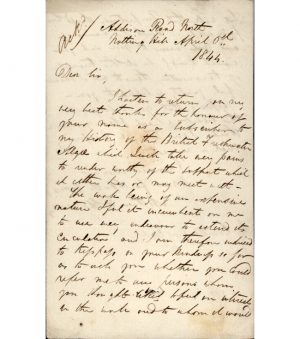 Ackd
Addison Road North
Notting Hill April 6th
1844.
Dear Sir,
I hasten to return you my
very best thanks for the honour of
your name as a subscriber to
my History of the British Freshwater
Algae which I will take every pains
to render worthy of the support which
it either has or may meet with.
The work being of an expensive
nature I feel it incumbent on me
to use every endeavour to extend its
circulation and I am therefore induced
to trespass on your kindness so far
as to ask you whether you could
refer me to any persons whom
you thought would feel an interest
in the work and to whom it would